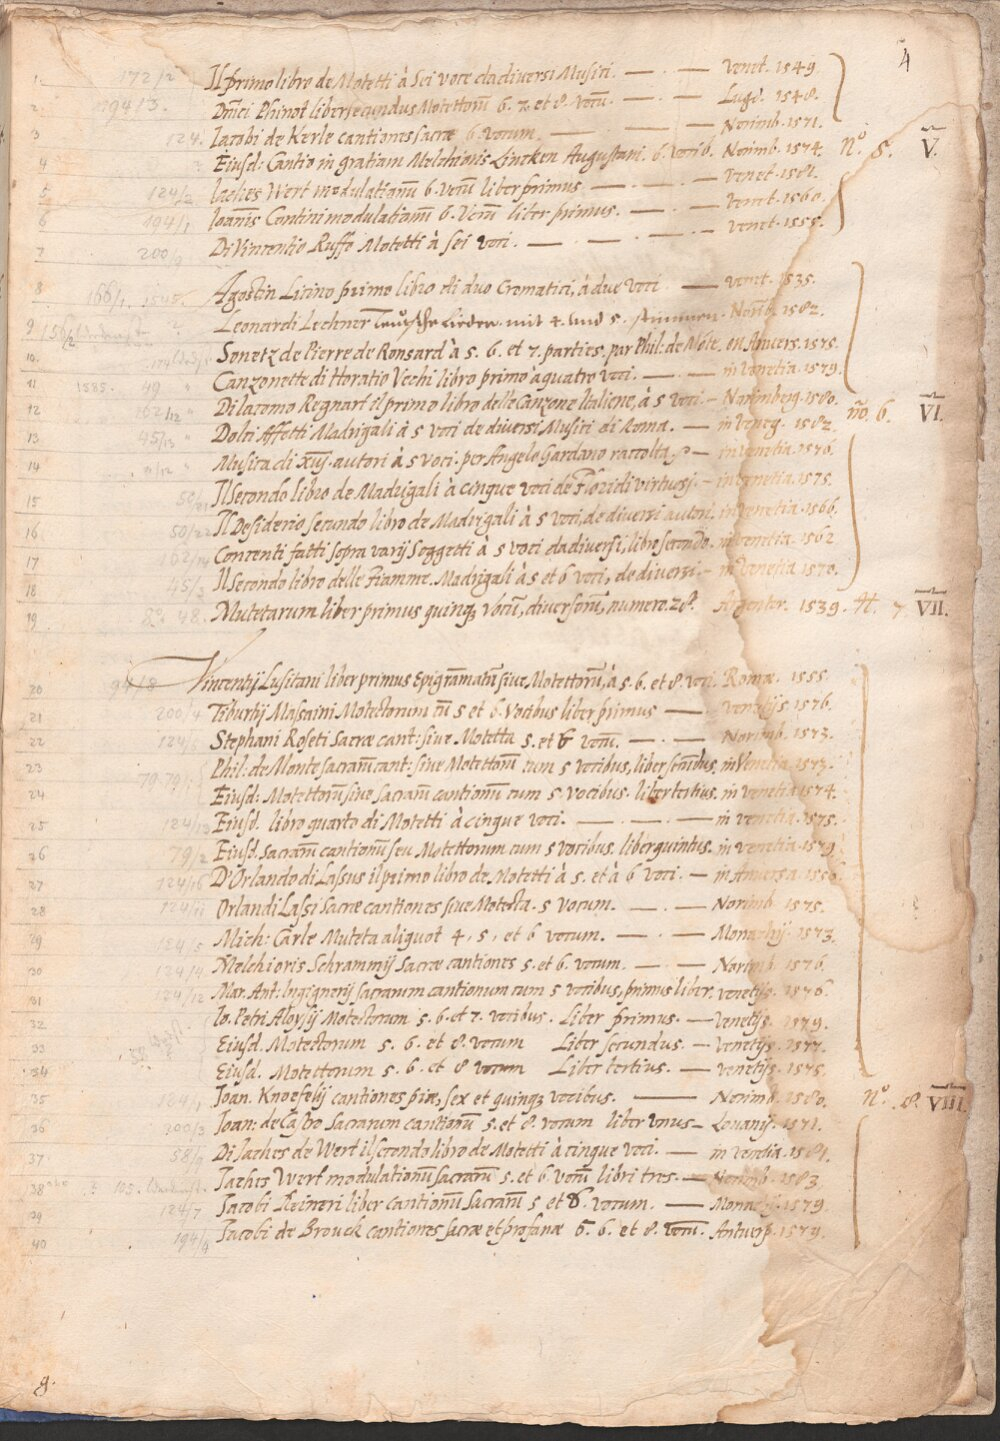 4
1. 172/2 Il primo libro de Motetti à Sei voce da diversi Musici. — . — Venet. 1549.
2. 194/3. Dm̃ici Phinot liber secundus Motettorũ 6. 7. et 8. vocũ. — . — Lugd. 1548.
3 124. Iacobi de Kerle cantiones sacræ 6. vocum. — — — Norimb. 1571.
4 Eiusd: Cantio in gratiam Melchioris Lincken Augustani. 6. vocib. Norimb. 1574. N.o 5. V.
5 124/2 Iaches Wert modulationũ 6. vocũ liber primus — . — Venet. 1581.
6 194/1 Ioannis Contini modulationũ 6. Vocũ liber primus. — . — Venet. 1560.
7 200/9 Di Vincentio Ruffo Motetti à sei voci. — . — . — Venet. 1555.
8 166/1. 1545. Agostin Licino primo libro di duo Cromatici, à due voci — Venet. 1535.
9 Leonardi Lechner Teutsche Lieder mit 4. und 5. stimmen. Norib. 1582.
10. Sonetz de Pierre de Ronsard à 5. 6. et 7. parties. par Phil: de Mõte. en Anvers. 1575.
11 1585. 49 " Canzonette di Horatio Vecchi libro primo à quatro voci. — . — in Venetia. 1579.
12 162/12 " Di Iacomo Regnart il primo libro delle Canzone Italiene, à 5 voci. — Norimberg. 1580. no. 6. VI.
13 45/13 " Dolci Affetti Madrigali à 5 voci de diversi Musici di Roma. — in Veneg. 1582.
14 Musica di XIII. autori à 5 voci. per Angelo Gardano raccolta. — in Venetia. 1576.
15 Il Secondo libro de Madrigali à cinque voci de Floridi virtuosi. — in Venetia. 1575.
16 50/22 Il Desiderio secundo libro de Madrigali à 5 voci, de diversi autori. in Venetia. 1566.
17 162/14 Concenti fatti sopra varij Soggetti à 5 voci da diversi, libro secondo. in Venetia. 1562
18 45/3 Il Secondo libro delle Fiamme. Madrigali à 5 et 6 voci, de diversi. — in Venetia. 1570.
19 48. Mutetarum liber primus quinq; vocũ, diversorũ, numero 28. Argenter. 1539. N. 7 VII.
20 94/8 Vincentij Lusitani liber primus Epigrãmatũ sive Motettorũ, à 5. 6. et 8. voci. Romæ. 1555.
21 200/4 Tiburtij Massaini Motectorum cũ 5 et 6. Vocibus liber primus — Venetijs. 1576.
22 124/6 Stephani Roseti Sacræ cant: sive Motetta 5. et 6 vocũ. — . — Norimb. 1573.
23 79. Phil: de Monte sacrarũ cant: sive Motettorũ cum 5 vocibus, liber secũdus. in Venetia. 1573.
24 Eiusd: Motettorũ sive sacrarũ cantionũ cum 5. vocibus. liber tertius. in Venetia 1574.
25 124/13 Eiusd. libro quarto di Motetti à cinque voci. — . — . — in Venetia. 1575.
26 79/2 Eiusd. Sacrarũ cantionũ seu Motettorum cum 5 vocibus. liber quintus. in Venetia. 1579.
27 124/16 D'Orlando di Lassus il primo libro de Motetti à 5. et à 6 voci. — in Anversa. 1556.
28 124/11 Orlandi Lassi Sacræ cantiones sive Motecta. 5 Vocum. — . — Norimb. 1575.
29 124/5 Mich: Carle Muteta aliquot 4, 5, et 6 vocum. — . — Monachij. 1573.
30 124/4 Melchioris Schrammij Sacræ cantiones 5. et 6. vocum. — . — Norimb. 1576.
31 124/12 Mar. Ant: Ingignerij sacrarum cantionum cum 5 vocibus, primus liber. Venetijs. 1576.
32 Io. Petri Aloysij Motectorum 5. 6. et 7. vocibus. Liber primus. — Venetijs. 1579.
33 Eiusd. Motectorum 5. 6. et 8. vocum Liber secundus. — Venetijs. 1577.
34 Eiusd. Motectorum 5. 6. et 8 vocum Liber tertius. — Venetijs. 1575.
35 124/1 Ioan. Knoefelij cantiones piæ, sex et quinq; vocibus. — Norimb. 1580. N.o 8. VIII.
36 200/3 Ioan: de Castro Sacrarum cantionũ 5. et 8. vocum liber unus — Lovanij. 1571.
37. 58/9 Di Iaches de Wert il secondo libro de Motetti à cinque voci. — in Venetia. 1581.
38 105. Iaches Wert modulationũ sacrarũ 5. et 6. vocũ libri tres. — Norimb. 1583.
39 124/7 Iacobi Reineri liber cantionũ Sacrarũ 5 et 6. vocum. — Monachij. 1579.
40 194/4 Iacobi de Brouck cantiones sacræ et profanæ 5. 6. et 8. vocũ. Antverp. 1579.
g.